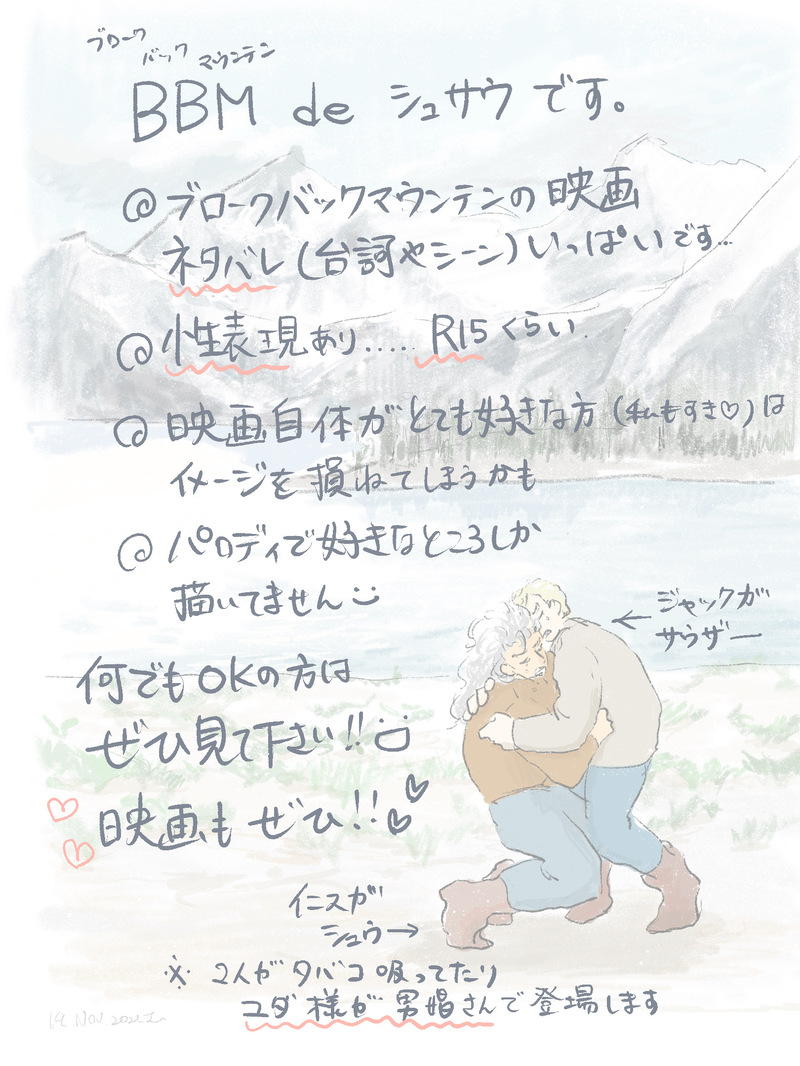 ブローク
バック
マウンテン
BBM de シュサウ です。
@ ブロークバックマウンテンの映画
ネタバレ(台詞やシーン)いっぱいです…
@ 性表現あり..... R15くらい.
@ 映画自体がとても好きな方(私もすき♡)は
イメージを損ねてしまうかも
@ パロディで好きなところしか
描いてません
ジャックが
サウザー
何でもOKの方は
ぜひ見て下さい!!
映画もぜひ!!
イニスが
シュウ→
※ 2人がタバコ吸ってたり
ユダ様が男娼さんで登場します
19 Nov